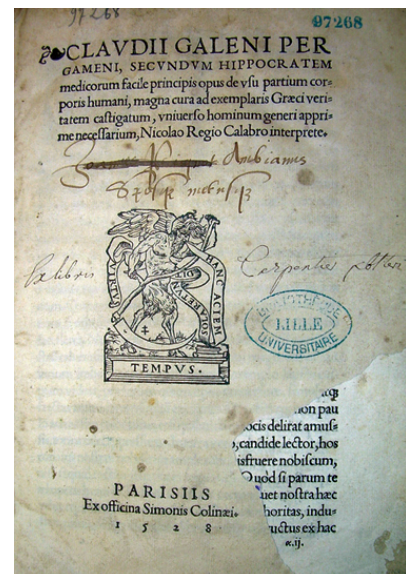 97268
97268
CLAVDII GALENI PER
GAMENI, SECVNDVM HIPPOCRATEM
medicorum facile principis opus de vsu partium cor=
poris humani, magna cura ad exemplaris Græci veri=
tatem castigatum, vniuerso hominum generi appri=
me necessarium, Nicolao Regio Calabro interprete.
Ambianus
HANC ACIEM
VIRTVS
TEMPVS.
Ex libris Carpentier
BIBLIOTHÈQUE
LILLE
UNIVERSITAIRE
non pau
ocis delirat amus=
candide lector, hos
isfruere nobiscum,
Quòd si parum te
uet nostra hæc
horitas, indu=
ructus ex hac
α.ij.
PARISIIS
Ex officina Simonis Colinæi.
1528